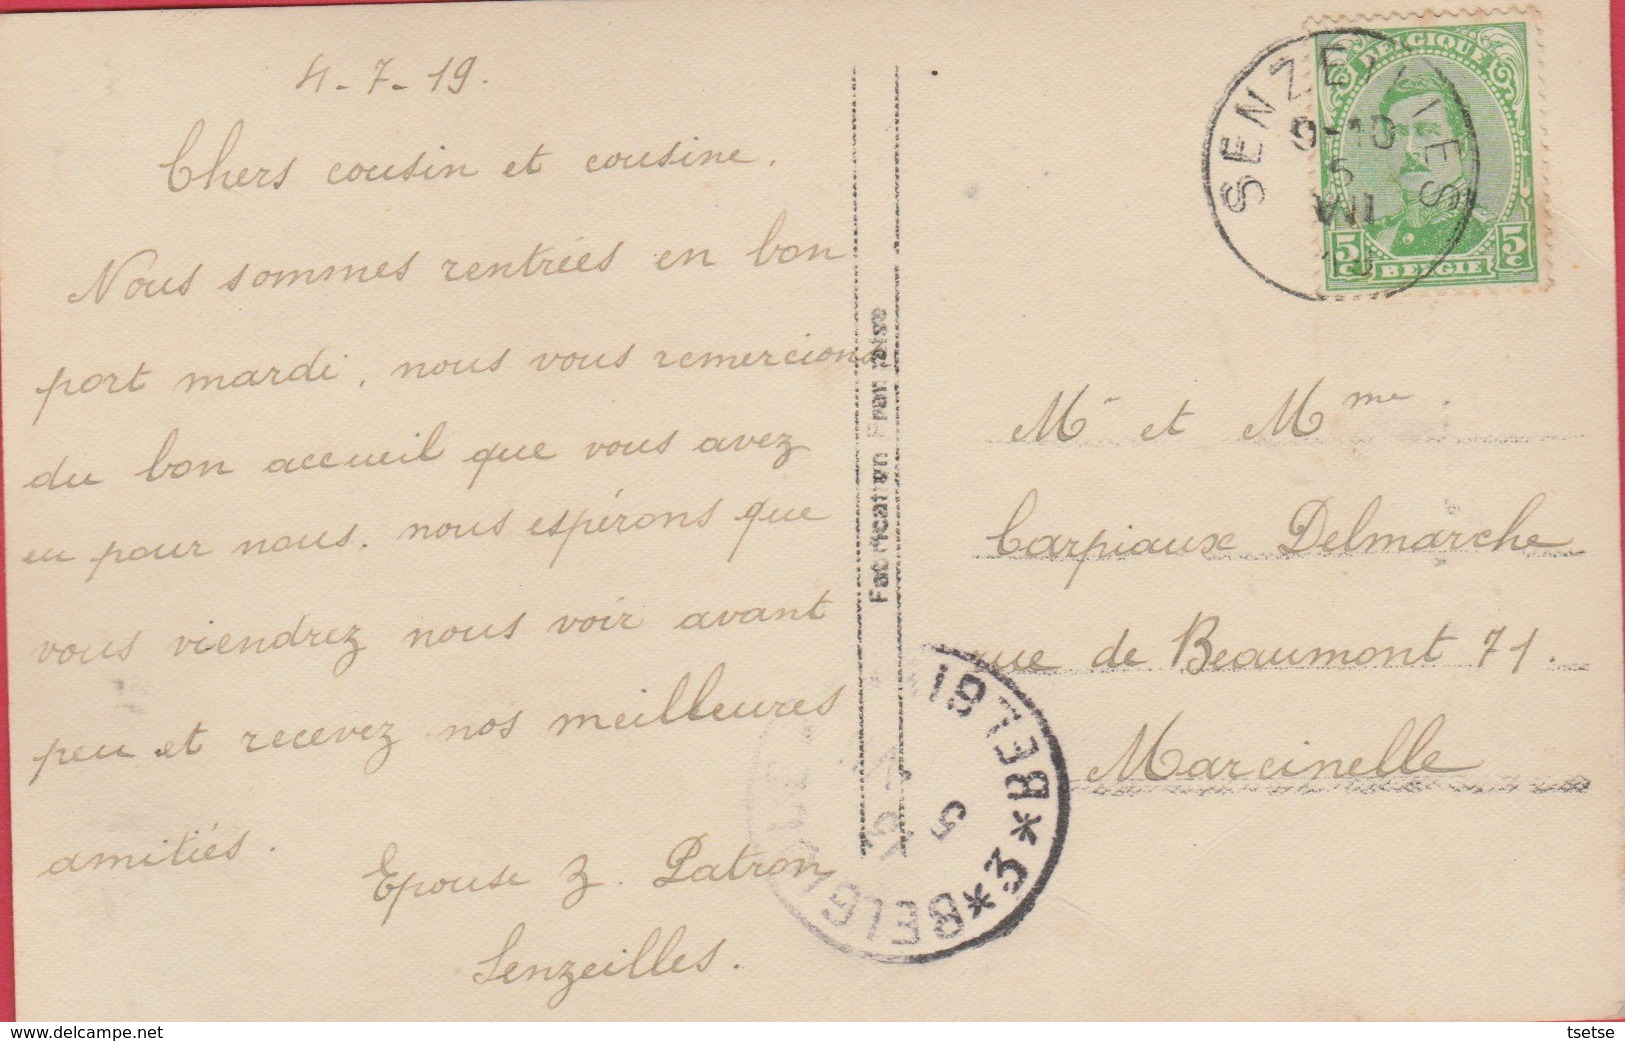 4-7-19.
Chers cousin et cousine.
Nous sommes rentrées en bon
port mardi, nous vous remercions
du bon accueil que vous avez
eu pour nous. nous espérons que
vous viendrez nous voir avant
peu et recevez nos meilleures
amitiés.
Epouse Z. Patron
Senzeilles.
Fabrication Française
SENZEILLES
9-10
5
VII
BELGIQUE
5c 5c
BELGIË
Mr et Mme
Carpiaux Delmarche
rue de Beaumont 71.
Marcinelle
5
*3*
www.delcampe.net
tsetse